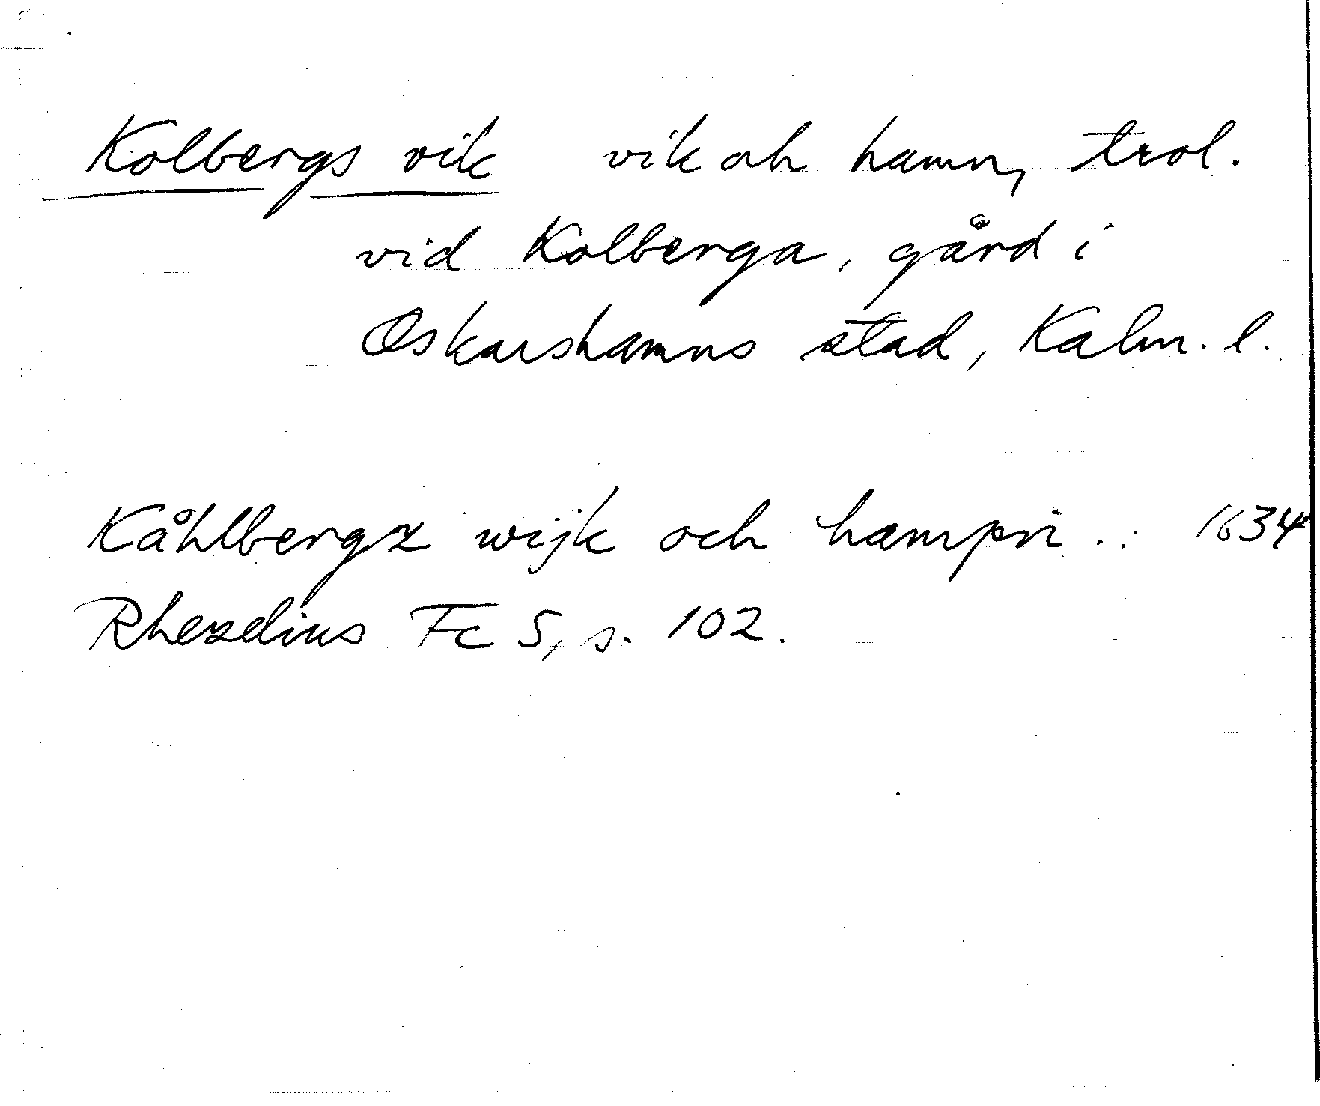 Kolbergs vik vik och hamn, trol.
vid Kolberga, gård i
Oskarshamns stad, Kalm. l.
Kåhlbergz wijk och hampn .. 1634
Rhezelius Fc 5, s. 102.